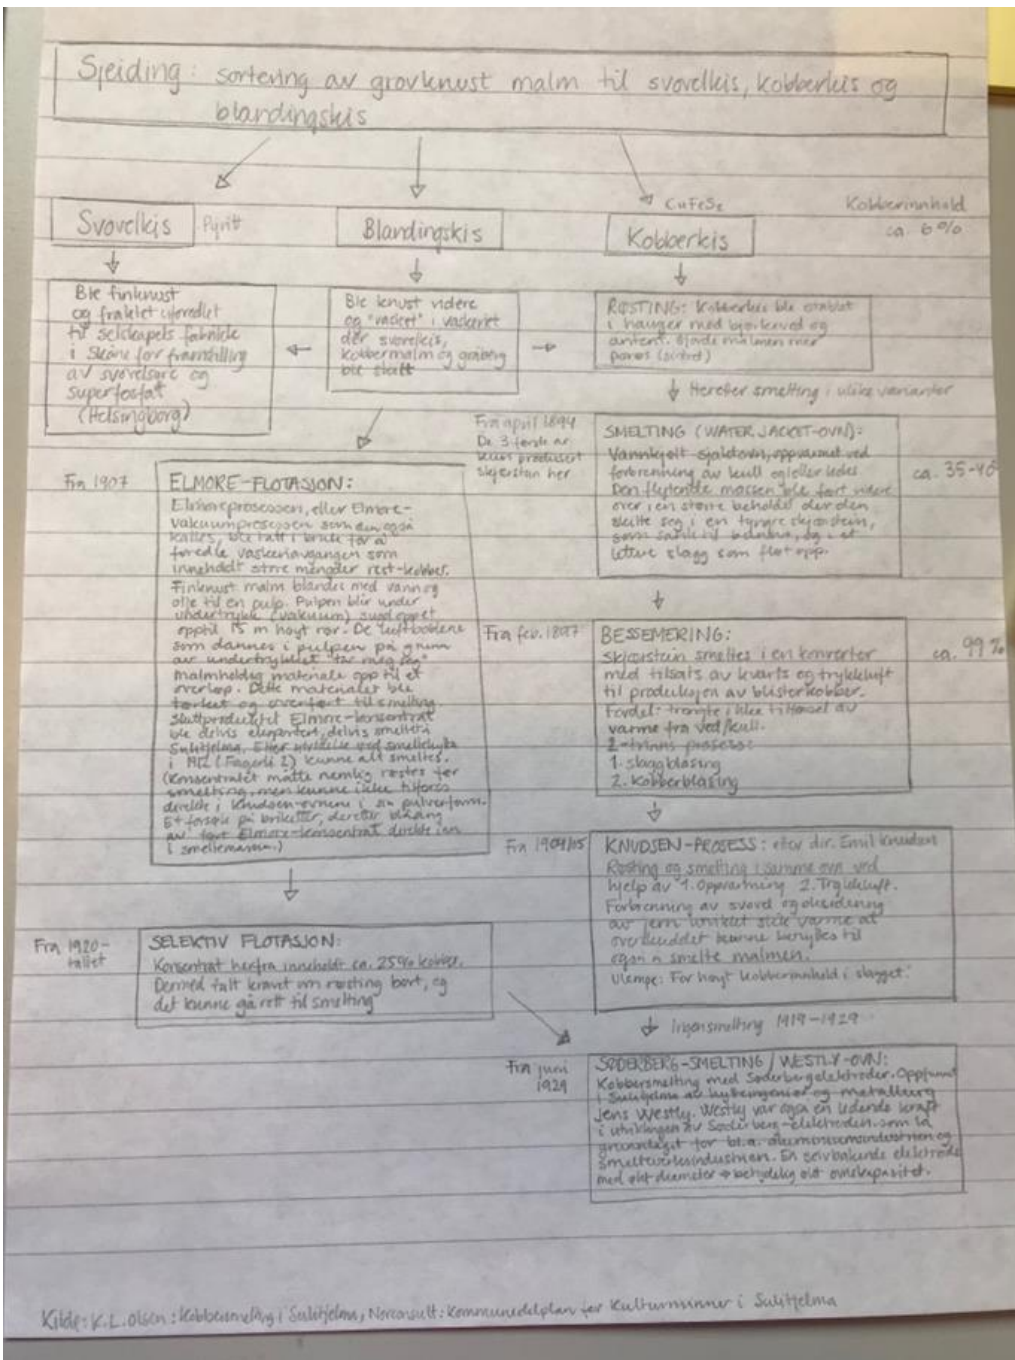 Sjeiding: sortering av grovknust malm til svovelkis, kobberkis og
blandingskis
Svovelkis
Pyritt
Blandingskis
CuFeS₂
Kobberkis
Kobberinnhold
ca. 6%
Ble finknust
og fraktet uforedlet
til selskapets fabrikk
i Skåne for framstilling
av svovelsyre og
superfosfat
(Helsingborg)
Ble knust videre
og "vasket" i vaskeriet
der svovelkis,
kobbermalm og gråberg
ble skilt
RØSTING: Kobberkis ble stablet
i hauger med bjørkeved og
antent. Gjorde malmen mer
porøs (sintret)
Heretter smelting i ulike varianter
Fra april 1894
De 3 første år
kun produsert
skjerstein her
SMELTING (WATER JACKET-OVN):
Vannkjølt sjaktovn, oppvarmet ved
forbrenning av kull og/eller koks
Den flytende massen ble ført videre
over i en større beholder der den
skilte seg i en tyngre skjærstein,
som sank til bunns, og i et
lettere slagg som fløt opp.
ca. 35-40
Fra 1907
ELMORE-FLOTASJON:
Elmoreprosessen, eller Elmore-
vakuumprosessen som den også
kalles, ble tatt i bruk for å
foredle vaskeriavgangen som
inneholdt store mengder rest-kobber.
Finknust malm blandes med vann og
olje til en pulp. Pulpen blir under
undertrykk (vakuum) sugd oppet
opptil 15 m høyt rør. De luftboblene
som dannes i pulpen på grunn
av undertrykket "tar meg seg"
malmholdig materiale opp til et
overløp. Dette materialet ble
tørket og overført til smelting.
Sluttproduktet Elmore-konsentrat
ble delvis eksportert, delvis smeltet i
Sulitjelma. Etter utvidelse ved smeltehytta
i 1912 (Fagerli 2) kunne alt smeltes.
(Konsentratet måtte nemlig røstes før
smelting, men kunne ikke tilføres
direkte i Knudsen-ovnene i sin pulverform.
Et forsøk på briketter, deretter blåsing
av tørt Elmore-konsentrat direkte inn
i smeltemassen.)
Fra feb. 1897
BESSEMERING:
Skjærstein smeltes i en konverter
med tilsats av kvarts og trykkluft
til produksjon av blisterkobber.
Fordel: trengte ikke tilførsel av
varme fra ved/kull.
2-trinns prosess:
1. slaggblåsing
2. Kobberblåsing
ca. 99%
Fra 1904/05
KNUDSEN-PROSESS: etter dir. Emil Knudsen
Røsting og smelting i samme ovn ved
hjelp av 1. Oppvarming 2. Trykkluft.
Forbrenning av svovel og oksidering
av jern utviklet slik varme at
overskuddet kunne benyttes til
også å smelte malmen.
Ulempe: For høyt kobberinnhold i slagget.
Ingen smelting 1919-1929
Fra 1920-
tallet
SELEKTIV FLOTASJON:
Konsentrat herfra inneholdt ca. 25% kobber.
Dermed falt kravet om røsting bort, og
det kunne gå rett til smelting
Fra juni
1929
SØDERBERG-SMELTING / WESTLY-OVN:
Kobbersmelting med Søderbergelektroder. Oppfunnet
i Sulitjelma av hytteingeniør og metallurg
Jens Westly. Westly var også en ledende kraft
i utviklingen av Søderberg-elektroden som la
grunnlaget for bl.a. aluminiumsindustrien og
smelteverksindustrien. En selvbakende elektrode
med økt diameter → betydelig økt ovnskapasitet.
Kilde: K.L. Olsen: Kobbersmelting i Sulitjelma, Norconsult: Kommunedelplan for Kulturminner i Sulitjelma